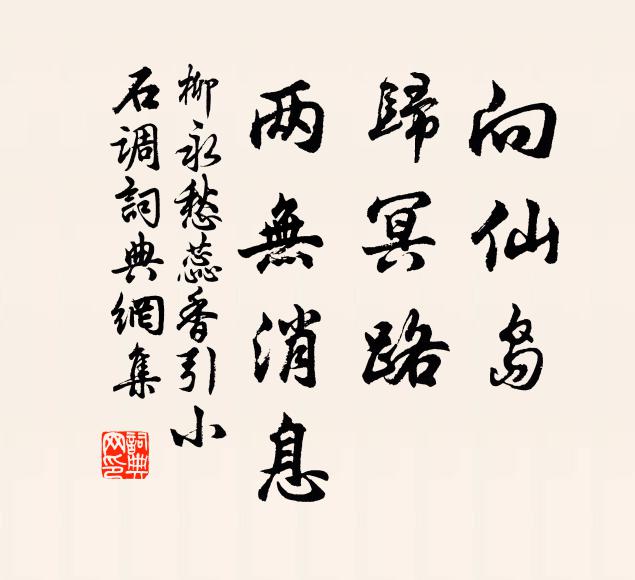 向仙岛
歸冥路
两無消息
柳永愁蕊香引小
石调詞典網集
詞典网印